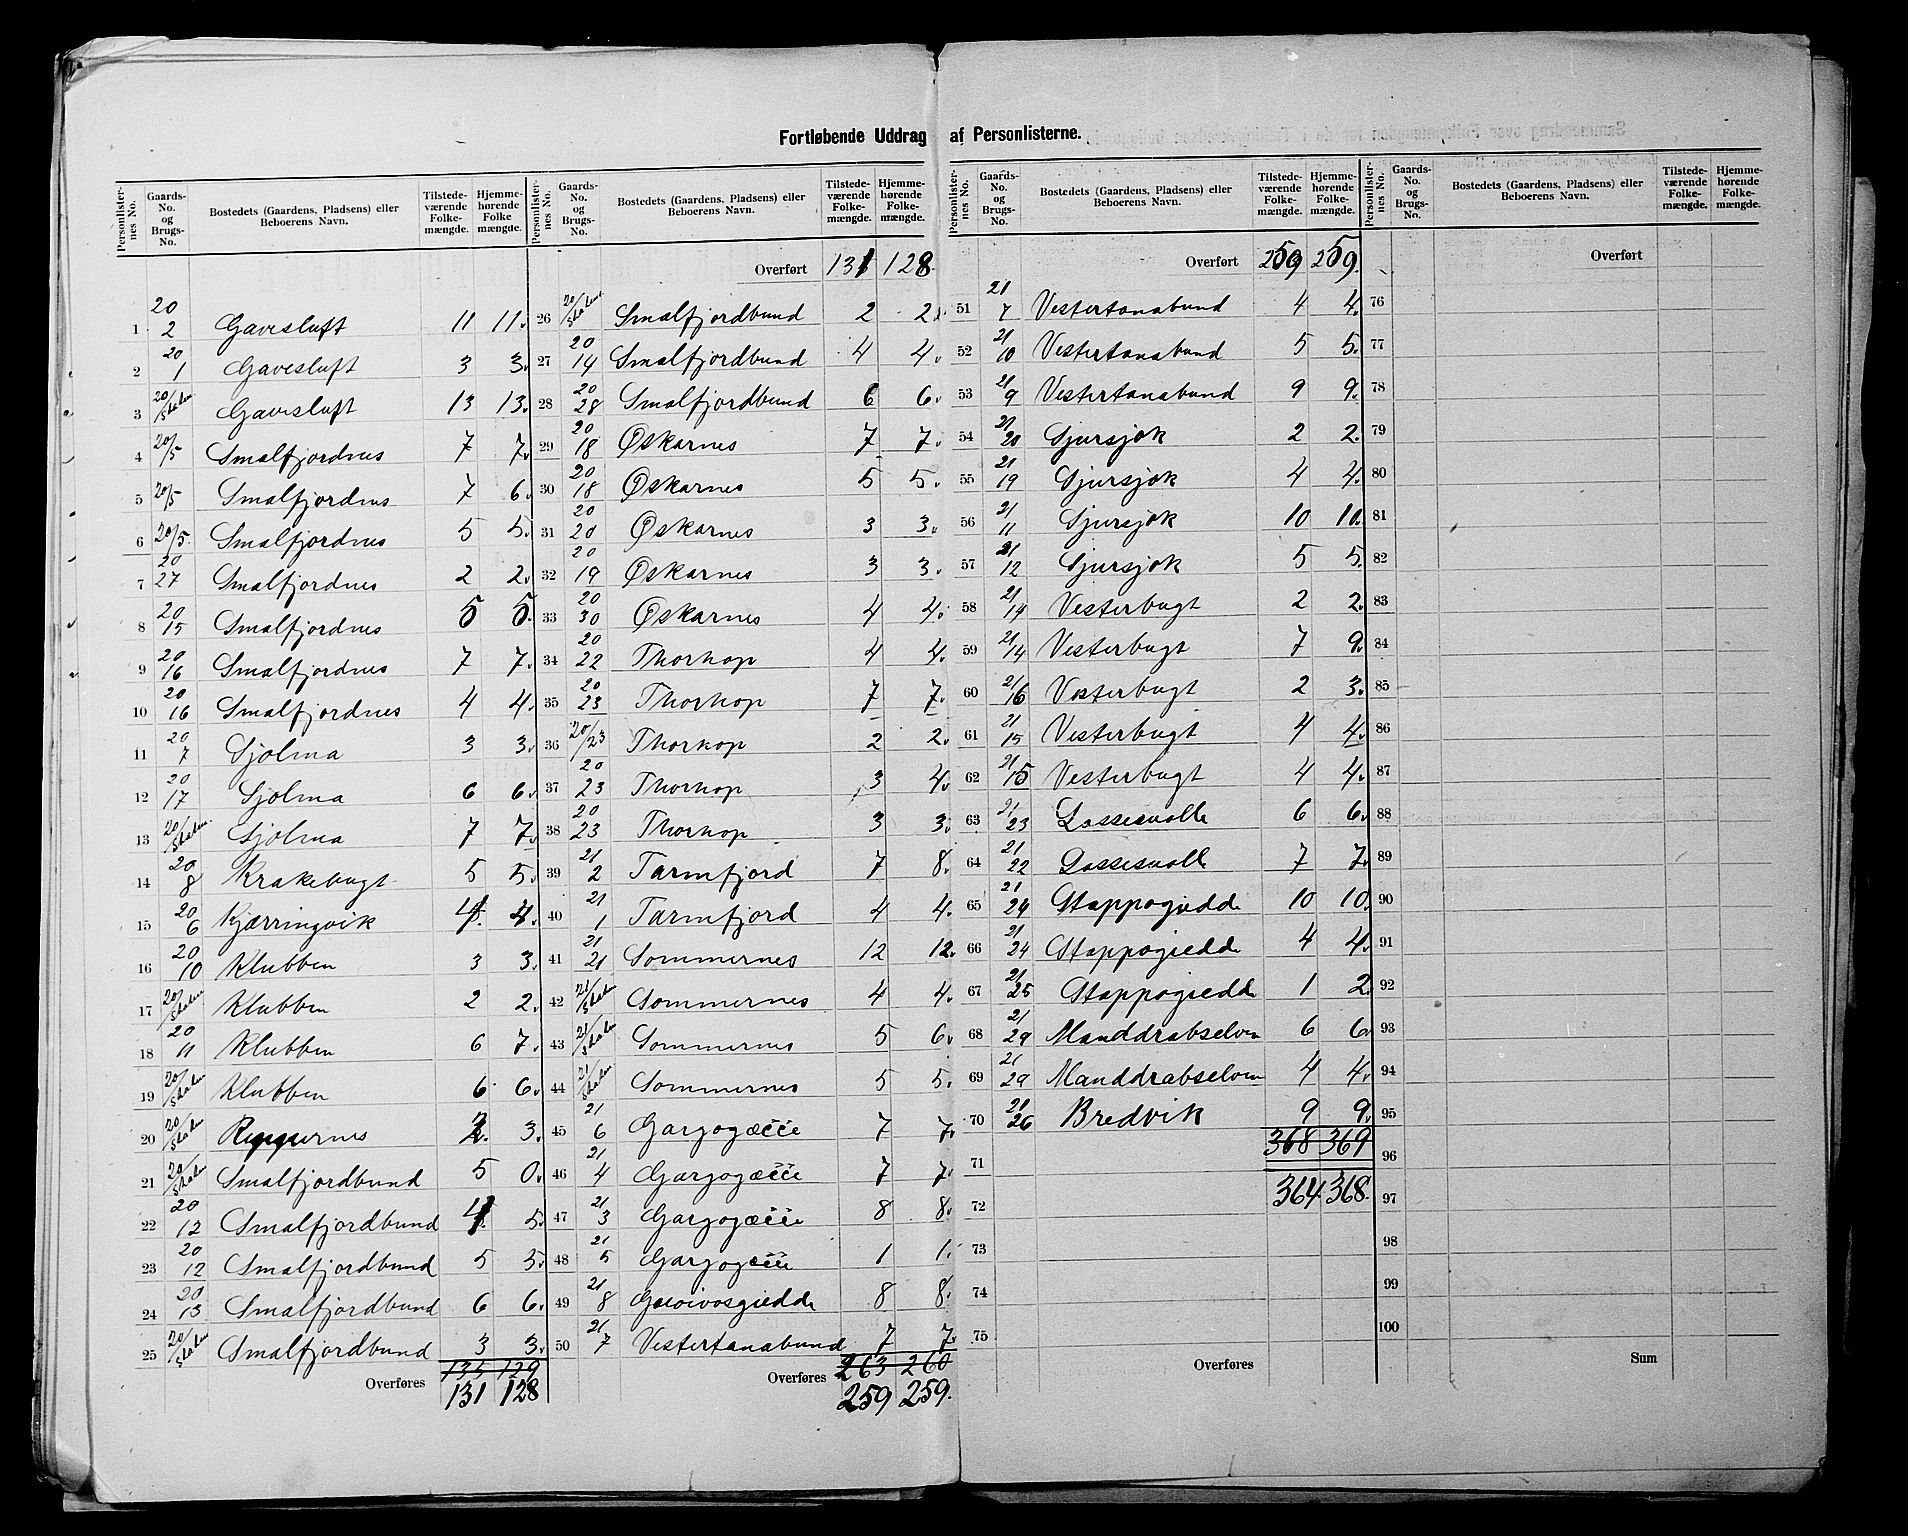 Fortløbende Uddrag af Personlisterne.
Personlister-nes No. Gaards-No. og Brugs-No. Bostedets (Gaardens, Pladsens) eller Beboerens Navn. Tilstede-værende Folke-mængde. Hjemme-hørende Folke mængde.
1 20/2 Gavesluft 11 11
2 20/1 Gavesluft 3 3
3 20/Staten Gavesluft 13 13
4 20/5 Smalfjordnes 7 7
5 20/5 Smalfjordnes 7 6
6 20/5 Smalfjordnes 5 5
7 20/27 Smalfjordnes 2 2
8 20/15 Smalfjordnes 5 5
9 20/16 Smalfjordnes 7 7
10 20/16 Smalfjordnes 4 4
11 20/7 Sjolma 3 3
12 20/17 Sjolma 6 6
13 20/Staten Sjolma 7 7
14 20/8 Krakebugt 5 5
15 20/6 Kjærringvik 4 4
16 20/10 Klubben 3 3
17 20/Staten Klubben 2 2
18 20/11 Klubben 6 7
19 20/Staten Klubben 6 6
20 20/Staten 3
21 20/Staten Smalfjordbund 5 0
22 20/12 Smalfjordbund 4 5
23 20/12 Smalfjordbund 5 5
24 20/13 Smalfjordbund 6 6
25 20/Staten Smalfjordbund 3 3
135 129
Overføres 131 128
Personlister-nes No. Gaards-No. og Brugs-No. Bostedets (Gaardens, Pladsens) eller Beboerens Navn. Tilstede-værende Folke-mængde. Hjemme-hørende Folke-mængde.
Overført 131 128
26 20/Staten Smalfjordbund 2 2
27 20/14 Smalfjordbund 4 4
28 20/28 Smalfjordbund 6 6
29 20/18 Øskarnes 7 7
30 20/18 Øskarnes 5 5
31 20/20 Øskarnes 3 3
32 20/19 Øskarnes 3 3
33 20/30 Øskarnes 4 4
34 20/22 Thorhop 4 4
35 20/23 Thorhop 7 7
36 20/23 Thorhop 2 2
37 20/23 Thorhop 3 4
38 20/23 Thorhop 3 3
39 21/2 Tarmfjord 7 8
40 21/1 Tarmfjord 4 4
41 21/21 Sommernes 12 12
42 21/Staten Sommernes 4 4
43 21/Staten Sommernes 5 6
44 21/Staten Sommernes 5 5
45 21/6 Gargogæčče 7 7
46 21/4 Gargogæčče 7 7
47 21/3 Gargogæčče 8 8
48 21/5 Gargogæčče 1 1
49 21/8 8 8
50 21/7 Vestertanabund 7 7
263 260
Overføres 259 259
Personlister-nes No. Gaards-No. og Brugs-No. Bostedets (Gaardens, Pladsens) eller Beboerens Navn. Tilstede-værende Folke-mængde. Hjemme-hørende Folke-mængde.
Overført 259 259
51 21/7 Vestertanabund 4 4
52 21/10 Vestertanabund 5 5
53 21/9 Vestertanabund 9 9
54 21/20 Sjursjok 2 2
55 21/19 Sjursjok 4 4
56 21/11 Sjursjok 10 10
57 21/12 Sjursjok 5 5
58 21/14 Vesterbugt 2 2
59 21/14 Vesterbugt 7 9
60 21/16 Vesterbugt 2 3
61 21/15 Vesterbugt 4 4
62 21/15 Vesterbugt 4 4
63 21/23 Lassesvolle 6 6
64 21/22 Lassesvolle 7 7
65 21/24 Stappogiedde 10 10
66 21/24 Stappogiedde 4 4
67 21/25 Stappogiedde 1 2
68 21/29 Manddrabselven 6 6
69 21/29 Manddrabselven 4 4
70 21/26 Bredvik 9 9
368 369
71
364 368
72
73
74
75
Overføres
Personlister-nes No. Gaards-No. og Brugs-No. Bostedets (Gaardens, Pladsens) eller Beboerens Navn. Tilstede-værende Folke-mængde. Hjemme-hørende Folke-mængde.
Overført
76
77
78
79
80
81
82
83
84
85
86
87
88
89
90
91
92
93
94
95
96
97
98
99
100
Sum